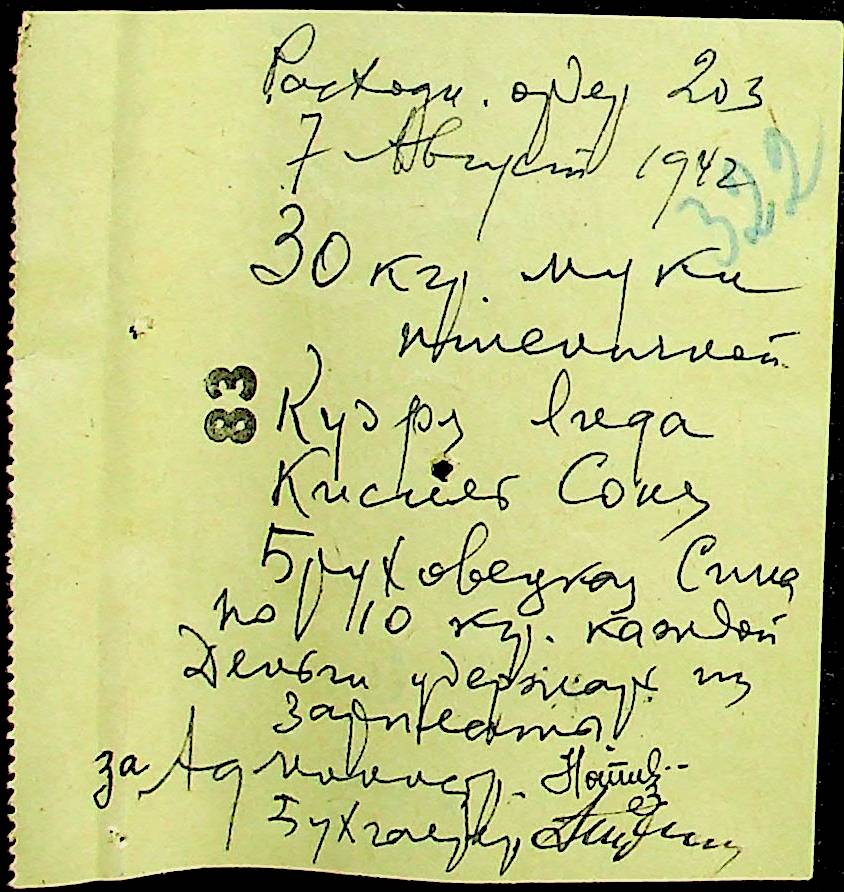 Расходн. ордер 203
7 Август 1942
322
30 кгр. муки
пшеничной
83
Куэрз Лида
Кислюс Соня
Бруховецкая Сима
по 10 кгр. каждой
Деньги удержать из
зарплаты
за Администр.
Бухгалтер